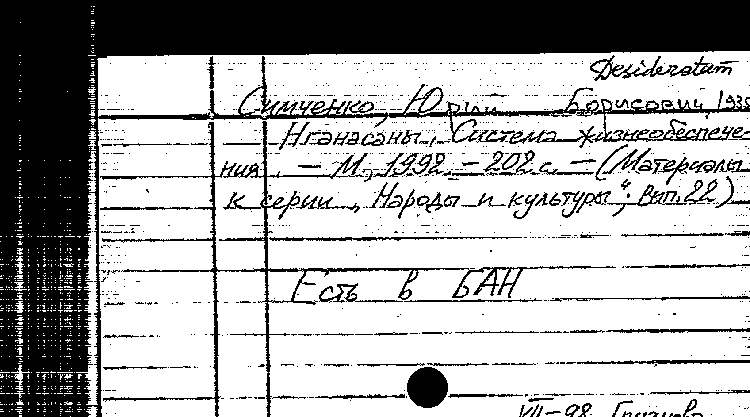 Desideratum
Симченко, Юрий Борисович, 1935
Нганасаны. Система жизнеобеспече-
ния. – М., 1992. – 202 с. – (Материалы
к серии „Народы и культуры“; Вып. 22)
Есть в БАН
VII–98